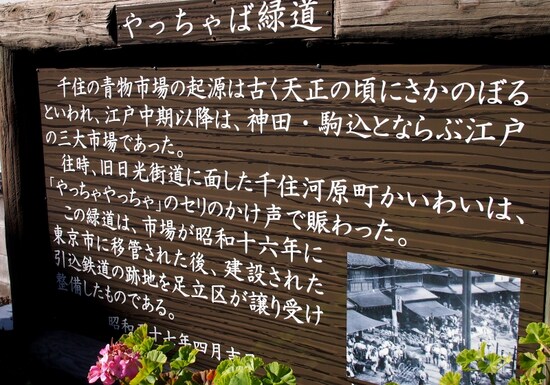 やっちゃば緑道
千住の青物市場の起源は古く天正の頃にさかのぼる
といわれ、江戸中期以降は、神田・駒込とならぶ江戸
の三大市場であった。
往時、旧日光街道に面した千住河原町かいわいは、
「やっちゃやっちゃ」のセリのかけ声で賑わった。
この緑道は、市場が昭和十六年に
東京市に移管された後、建設された
引込鉄道の跡地を足立区が譲り受け
整備したものである。
昭和 十七年四月吉日